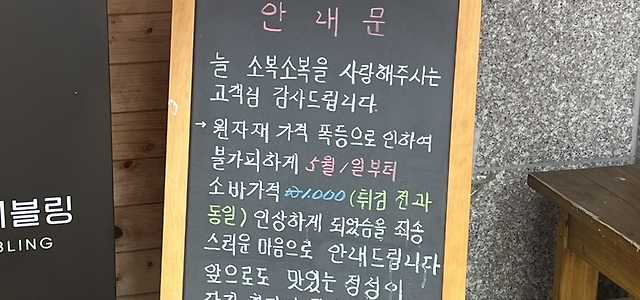 안 내 문
늘 소복소복을 사랑해주시는
고객님 감사드립니다.
→ 원자재 가격 폭등으로 인하여
불가피하게 5월 1일부터
소바가격 ₩1.000 (튀김 전과
동일) 인상하게 되었습을 죄송
스러운 마음으로 안내드립니다
앞으로도 맛있는 정성이
블링
BLING